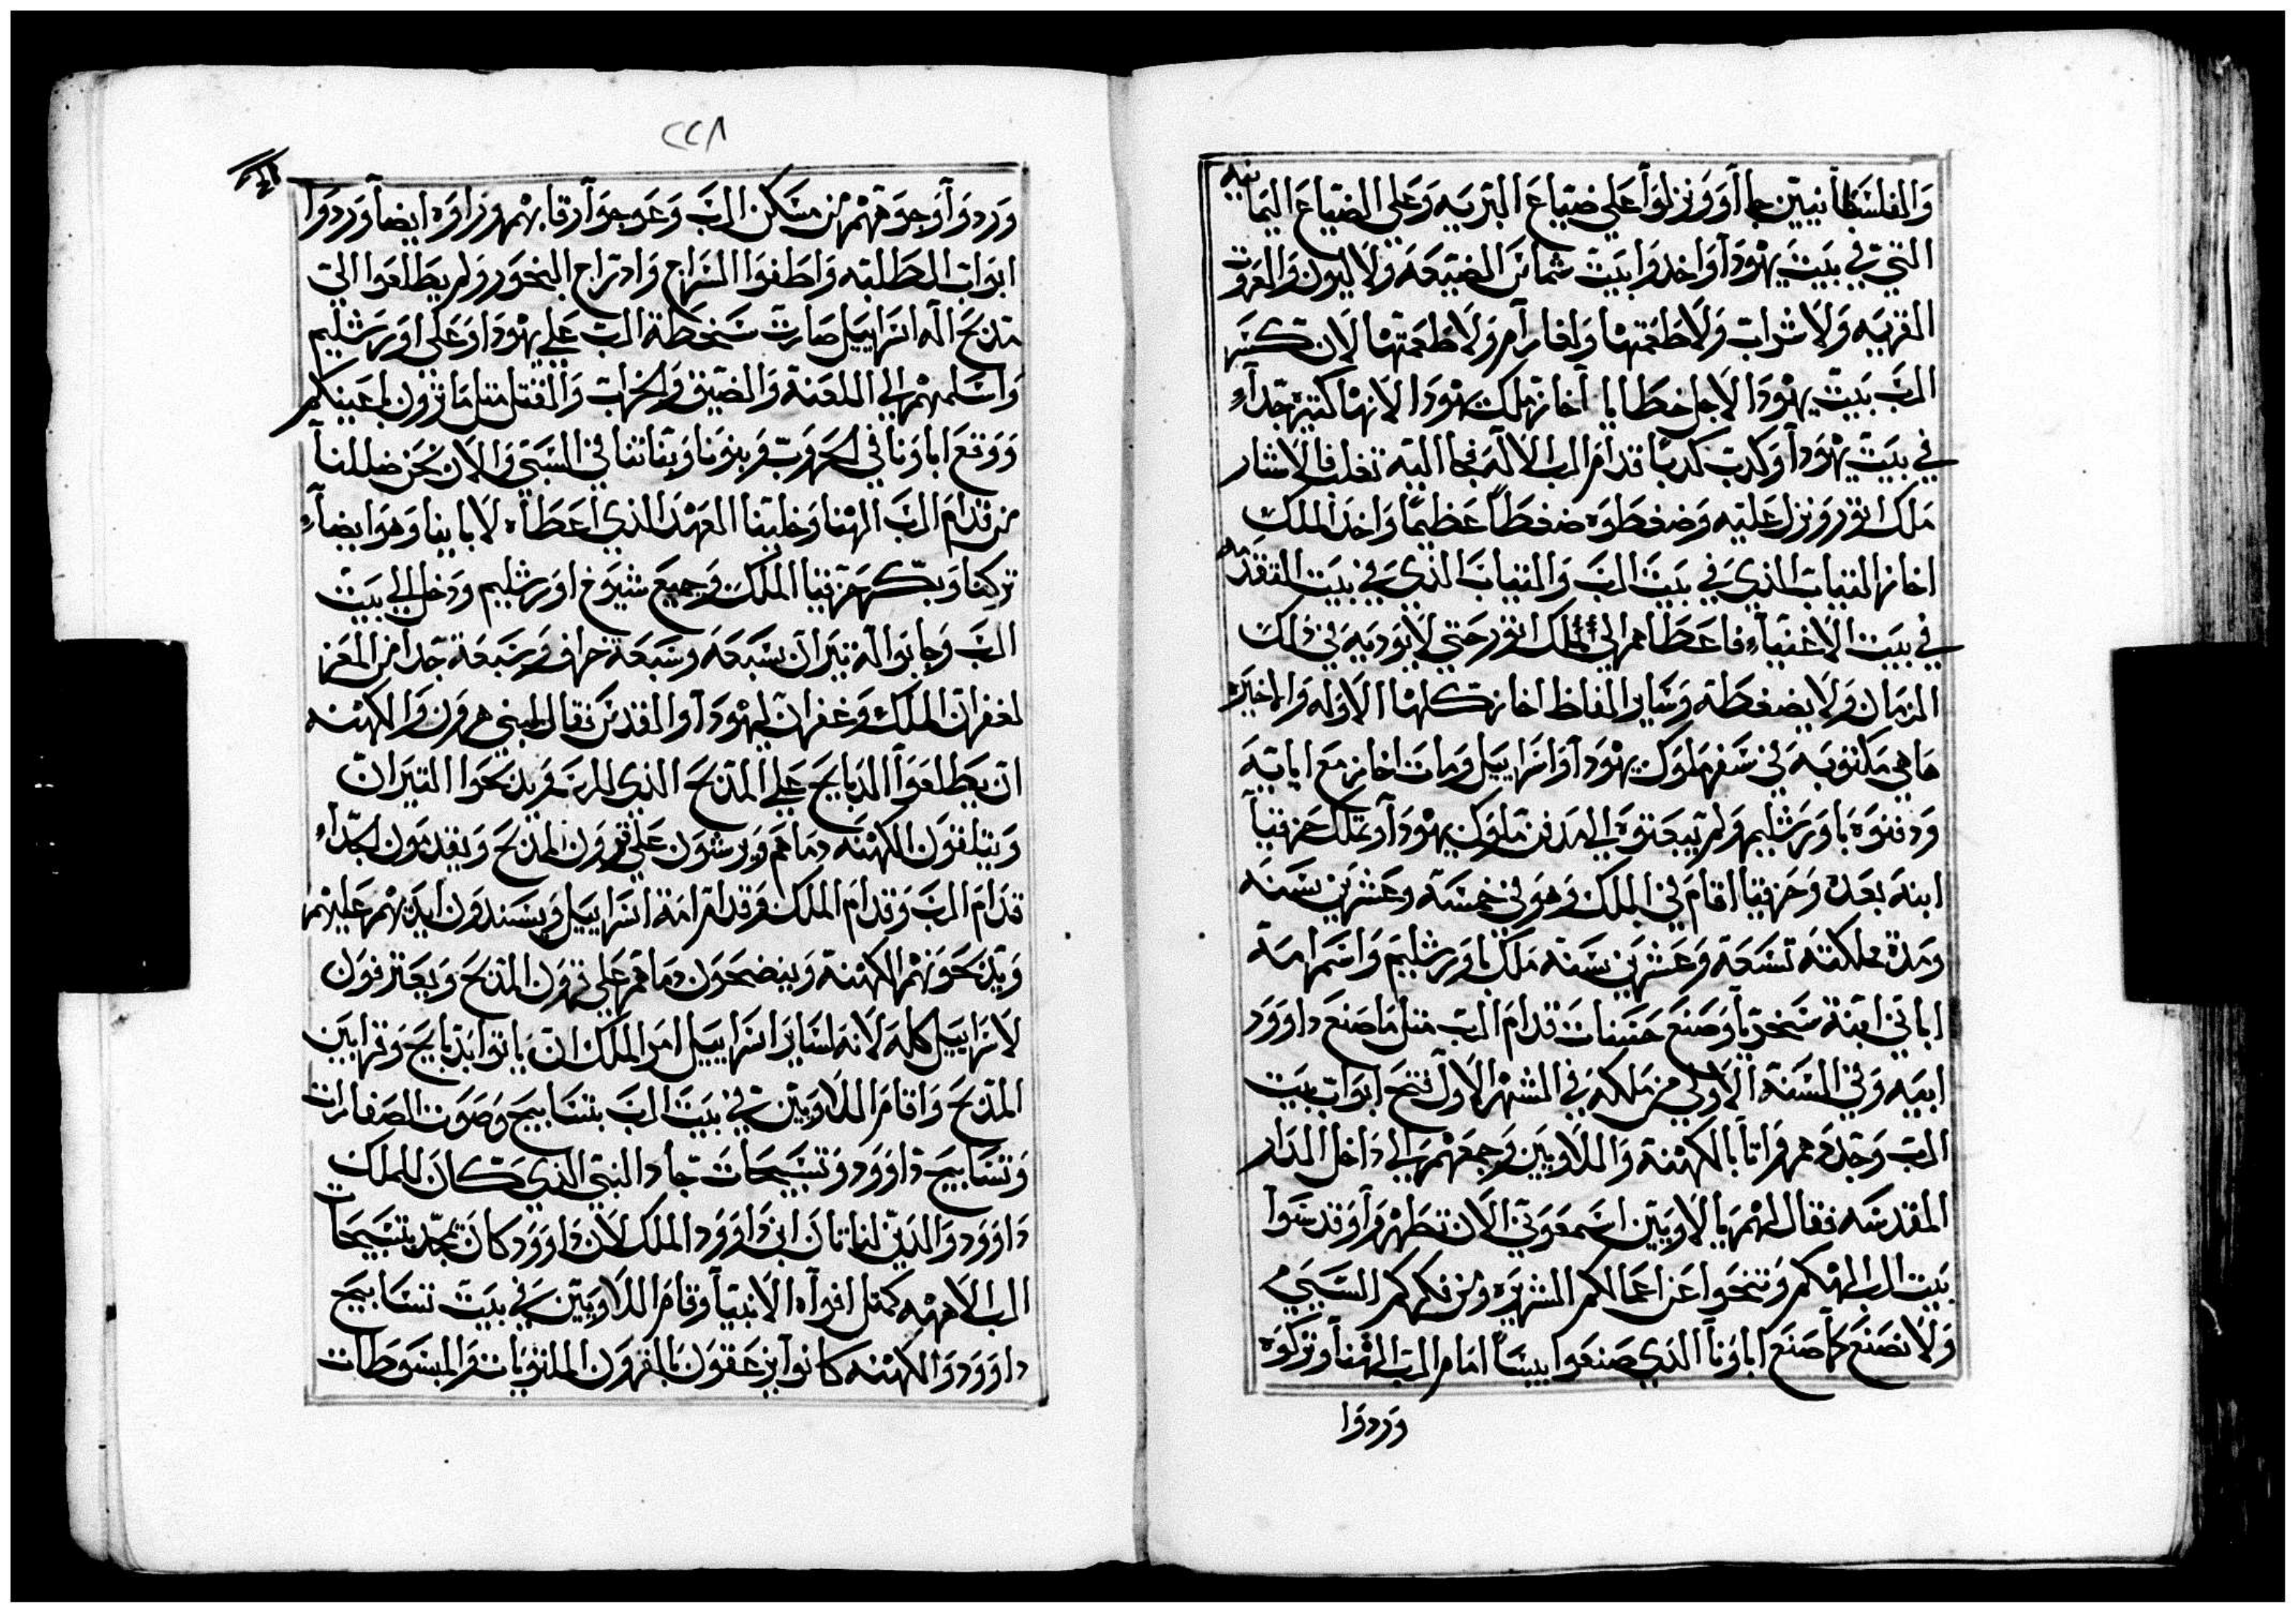 والفلسطانيين جاآو ونزلوا علي ضياع التربيه وعلي الضياع اليمانيه
التي في بيت يهودا واخدوا بيت شماس الضيعه ولا ليون والعروت
القريبه ولا شرات ولا طغمتها وافارام ولا طغمتها لان تكسر
الرب بيت يهودا لاجل خطايا آخاز ملك يهودا لانها كتيره جداً
في بيت يهودا وكدب كدبا قدام الرب الاله فجا اليه تغلفالاشار
ملك اتور ونزل عليه وضغطوه ضغطاً عظيمًا واخد الملك
اخاز التياب الذي في بيت الرب والتياب الذي في بيت المتقدم
في بيت الاغنياء فاعطاهم الي ملك اتور حتي لا يوديه في ذلك
الزمان ولا يضغطه وساير الفاظ اخاز كلها الاوله والاخيره
ماهي مكتوبه في سفر ملوك يهودا واسراييل ومات اخاز مع ابايه
ودفنوه باورشليم ولم يبعتوه الي مدفن ملوك يهودا وتملك حزقيا
ابنه بعده وحزقيا اقام في الملك وهو في خمسة وعشرين سنه
ومدة مملكته تسعة وعشرين سنه ملك باورشليم واسم امه
اباتي ابنة سخريا وصنع حسنات قدام الرب متل ما صنع داوود
ابيه وفي السنة الاولي من ملكه في الشهر الاول فتح ابواب بيت
الرب وجددهم واتا بالكهنة واللاويين وجمعهم الي داخل الدار
المقدسه فقال لهم يا لاويين اسمعوني الان تطهروا وقدسوا
بيت الرب الهكم وتنحوا عن اعمالكم الشريره ومن فكركم السيي
ولا نصنع كما صنع اباونا الذي صنعوا بيسا امام الرب الهنا وتركوه
وردوا
٢٢٨
وردوا وجوههم من مسكن الرب وعوجوا رقابهم وزاوه ايضا وردوا
ابواب المطلبه واطفوا السراج وادراج البخور ولم يطلعوا الي
مدبح اله اسراييل صارت سخطة الرب علي يهودا وعلي اورشليم
واسلمهم الي اللعنة والضيق والخراب والقتل متل ما ترون باعينكم
ووقع اباونا في الحروب وبنونا وبناتنا في السبي والان نحن ضللنا
من قدام الرب الهنا وخلينا العهد الذي اعطاه لاباينا وهو ايضاً
تركنا وبكر حزقيا الملك وجميع شيوخ اورشليم ودخل الي بيت
الرب وجابوا له تيران سبعه وسبعة خراف وسبعة جدا من المعز
لغفران الملك وغفران ليهودا والقدس فقال لبني هرون والكهنه
ان يطلعوا الدبايح علي المدبح الذي للرب فريدبحوا التيران
ويتلقون الكهنه دماهم ويرشون علي قرون المدبح ويقدمون الجداء
قدام الرب وقدام الملك وقدام امة اسراييل ويسندون ايديهم عليهم
ويدبحونهم الكهنة وينضحون دماهم علي قرون المدبح ويعترفون
لاسراييل كله لانه لساير اسراييل امر الملك ان ياتوا بدبايح وقرابين
المدبح واقام اللاويين في بيت الرب بتسابيح وصوت الصفارات
وتسابيح داوود وتسبيحات جاد النبي الذي كان للملك
داوود والذي لناتان ابن داوود الملك لان داوود كان يمجد بتسبيحات
الرب الاهه كمتل افواه الانبيا وقام اللاويين في بيت تسابيح
داوود والكهنه كانوا يزعقون بالقرون الملتويات والمبسوطات